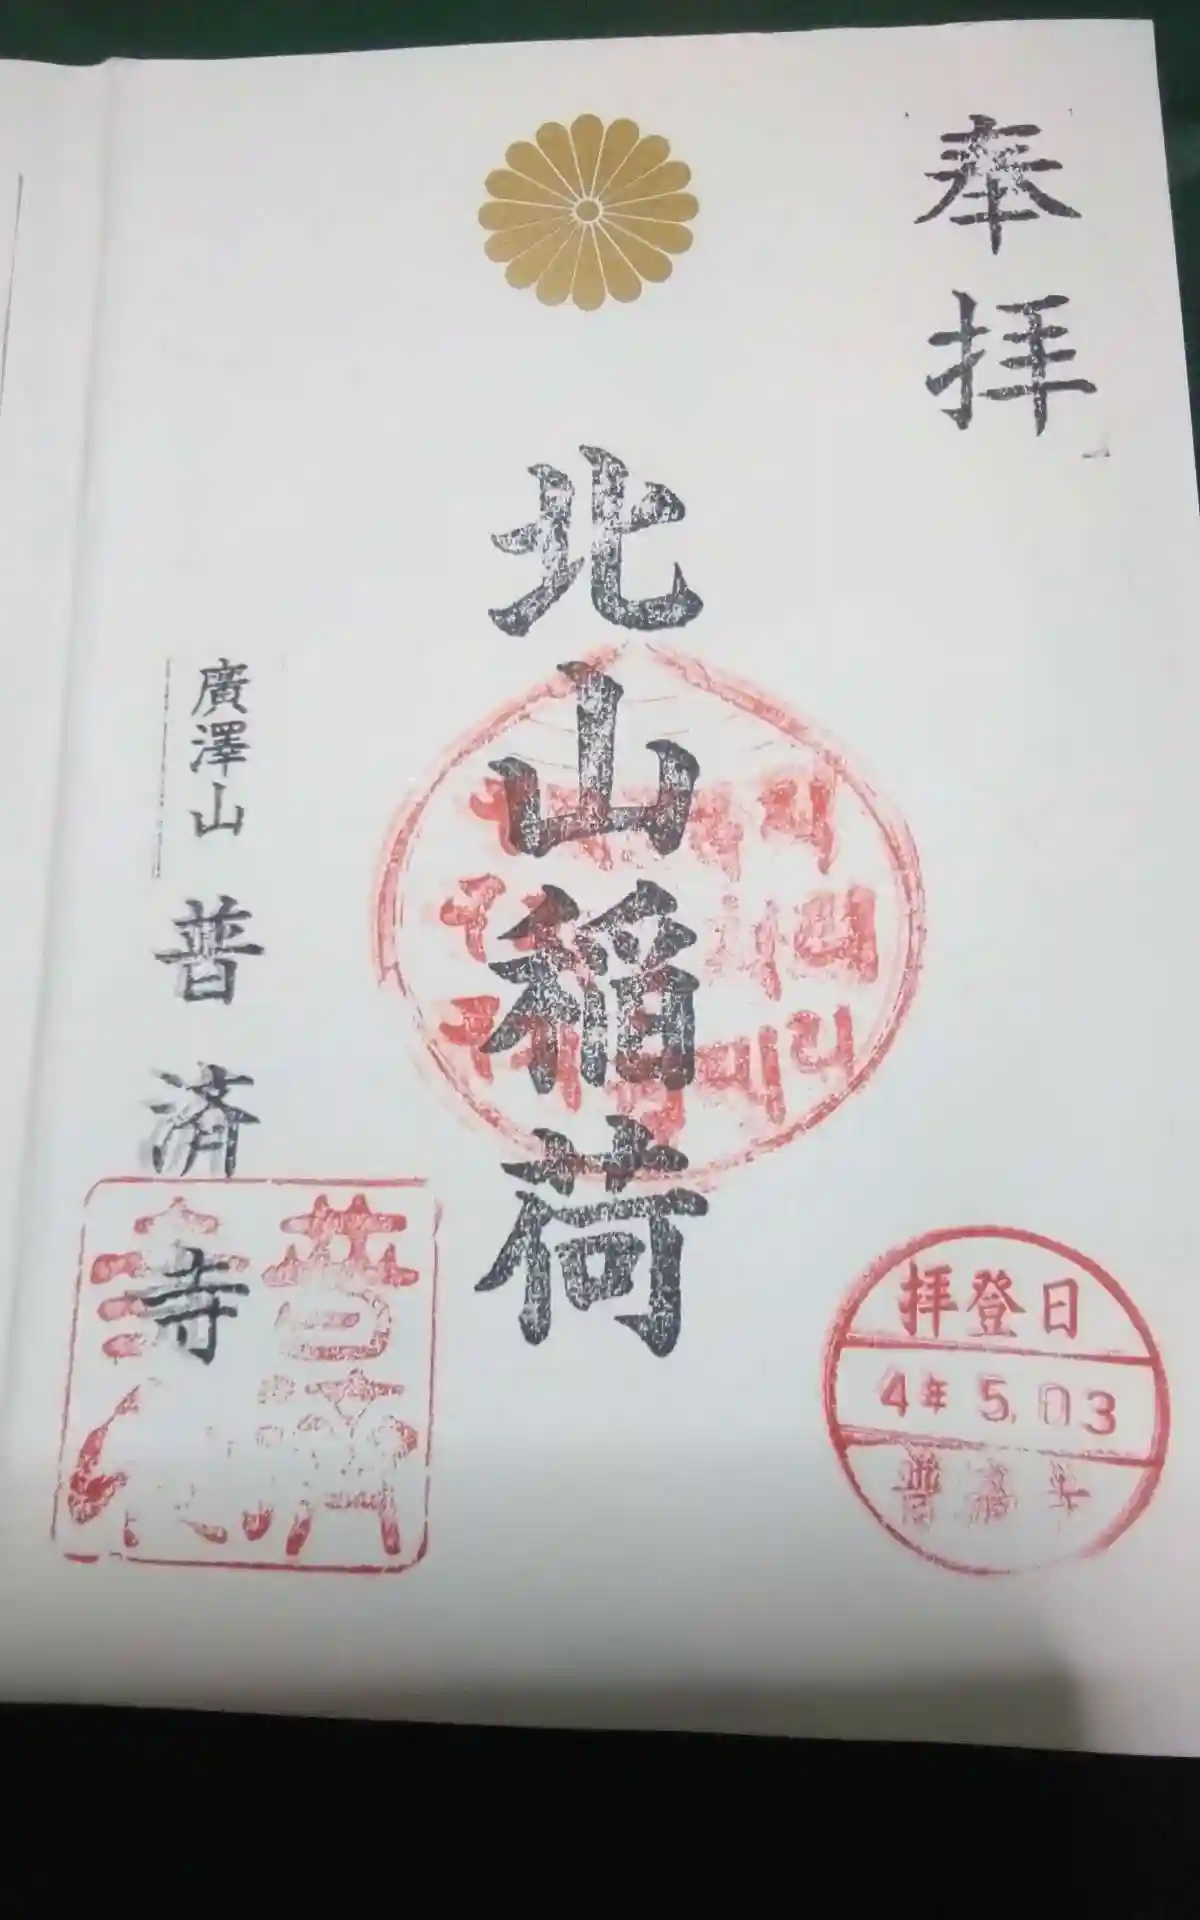 奉拝
北山稲荷
廣澤山 普済寺
拝登日
4年 5.03
普済寺